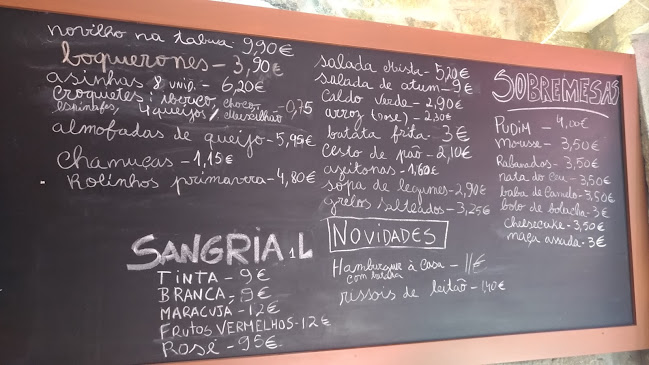 novilho na tabua 9,90€
boquerones - 3,90€
asinhas 8 unid. - 6,20€
croquetes: iberico, choco,
espinafes, 4 queijos/ Mexilhão -0,75
almofadas de queijo - 5,95€
chamuças - 1,15€
Rolinhos primavera - 4,80€
SANGRIA 1L
TINTA - 9€
BRANCA - 9€
MARACUJÁ - 12€
FRUTOS VERMELHOS - 12€
Rosé - 95€
salada Mista - 5,20€
salada de atum - 9€
Caldo Verde - 2,90€
arroz (dose) - 2,30€
batata frita - 3€
cesto de pão - 2,10€
azeitonas - 1,60€
sopa de legunes - 2,90€
grelos salteados - 3,25€
NOVIDADES
Hamburgue à Casa - 11€
com batata
rissois de leitão - 1,40€
SOBREMESAS
PUDIM - 4,00€
mousse - 3,50€
Rabanados - 3,50€
nata do Céu - 3,50€
baba de Camelo - 3,50€
bolo de bolacha - 3€
cheesecake - 3,50€
maça assada - 3€